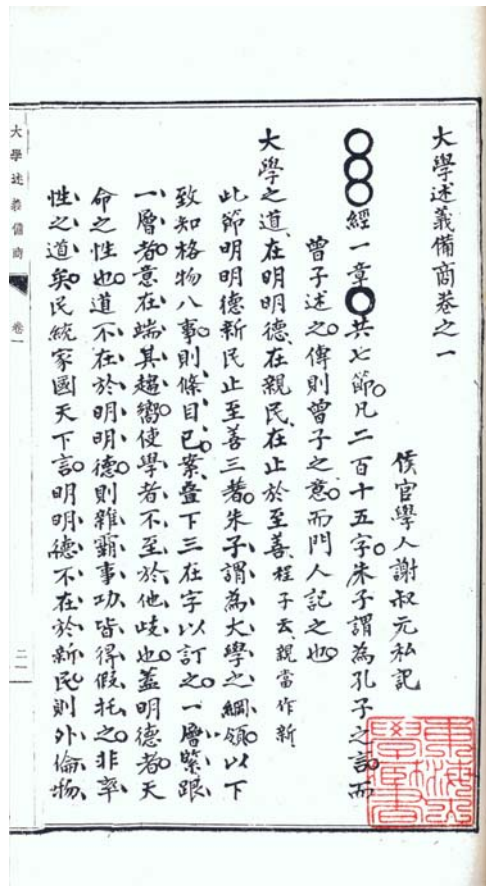 大學述義備商卷之一
侯官學人謝叔元私記
○○○經一章○共七節。凡二百十五字。朱子謂為孔子之言。而
曾子述之。傳則曾子之意。而門人記之也
大學之道、在明明德、在親民、在止於至善、程子云親當作新
此節明明德新民止至善三者。朱子謂為大學之綱領。以下
致知格物八事。則條目已案。疊下三在字以訂之。一層緊跟
一層者。意在端其趨嚮。使學者不至於他歧也。蓋明德者天
命之性也。道不在於明明德。則雜霸事功、皆得假托之。非率
性之道矣。民統家國天下言。明明德不在於新民、則外倫物、
大學述義備商
卷一
二一
東海大學圖書